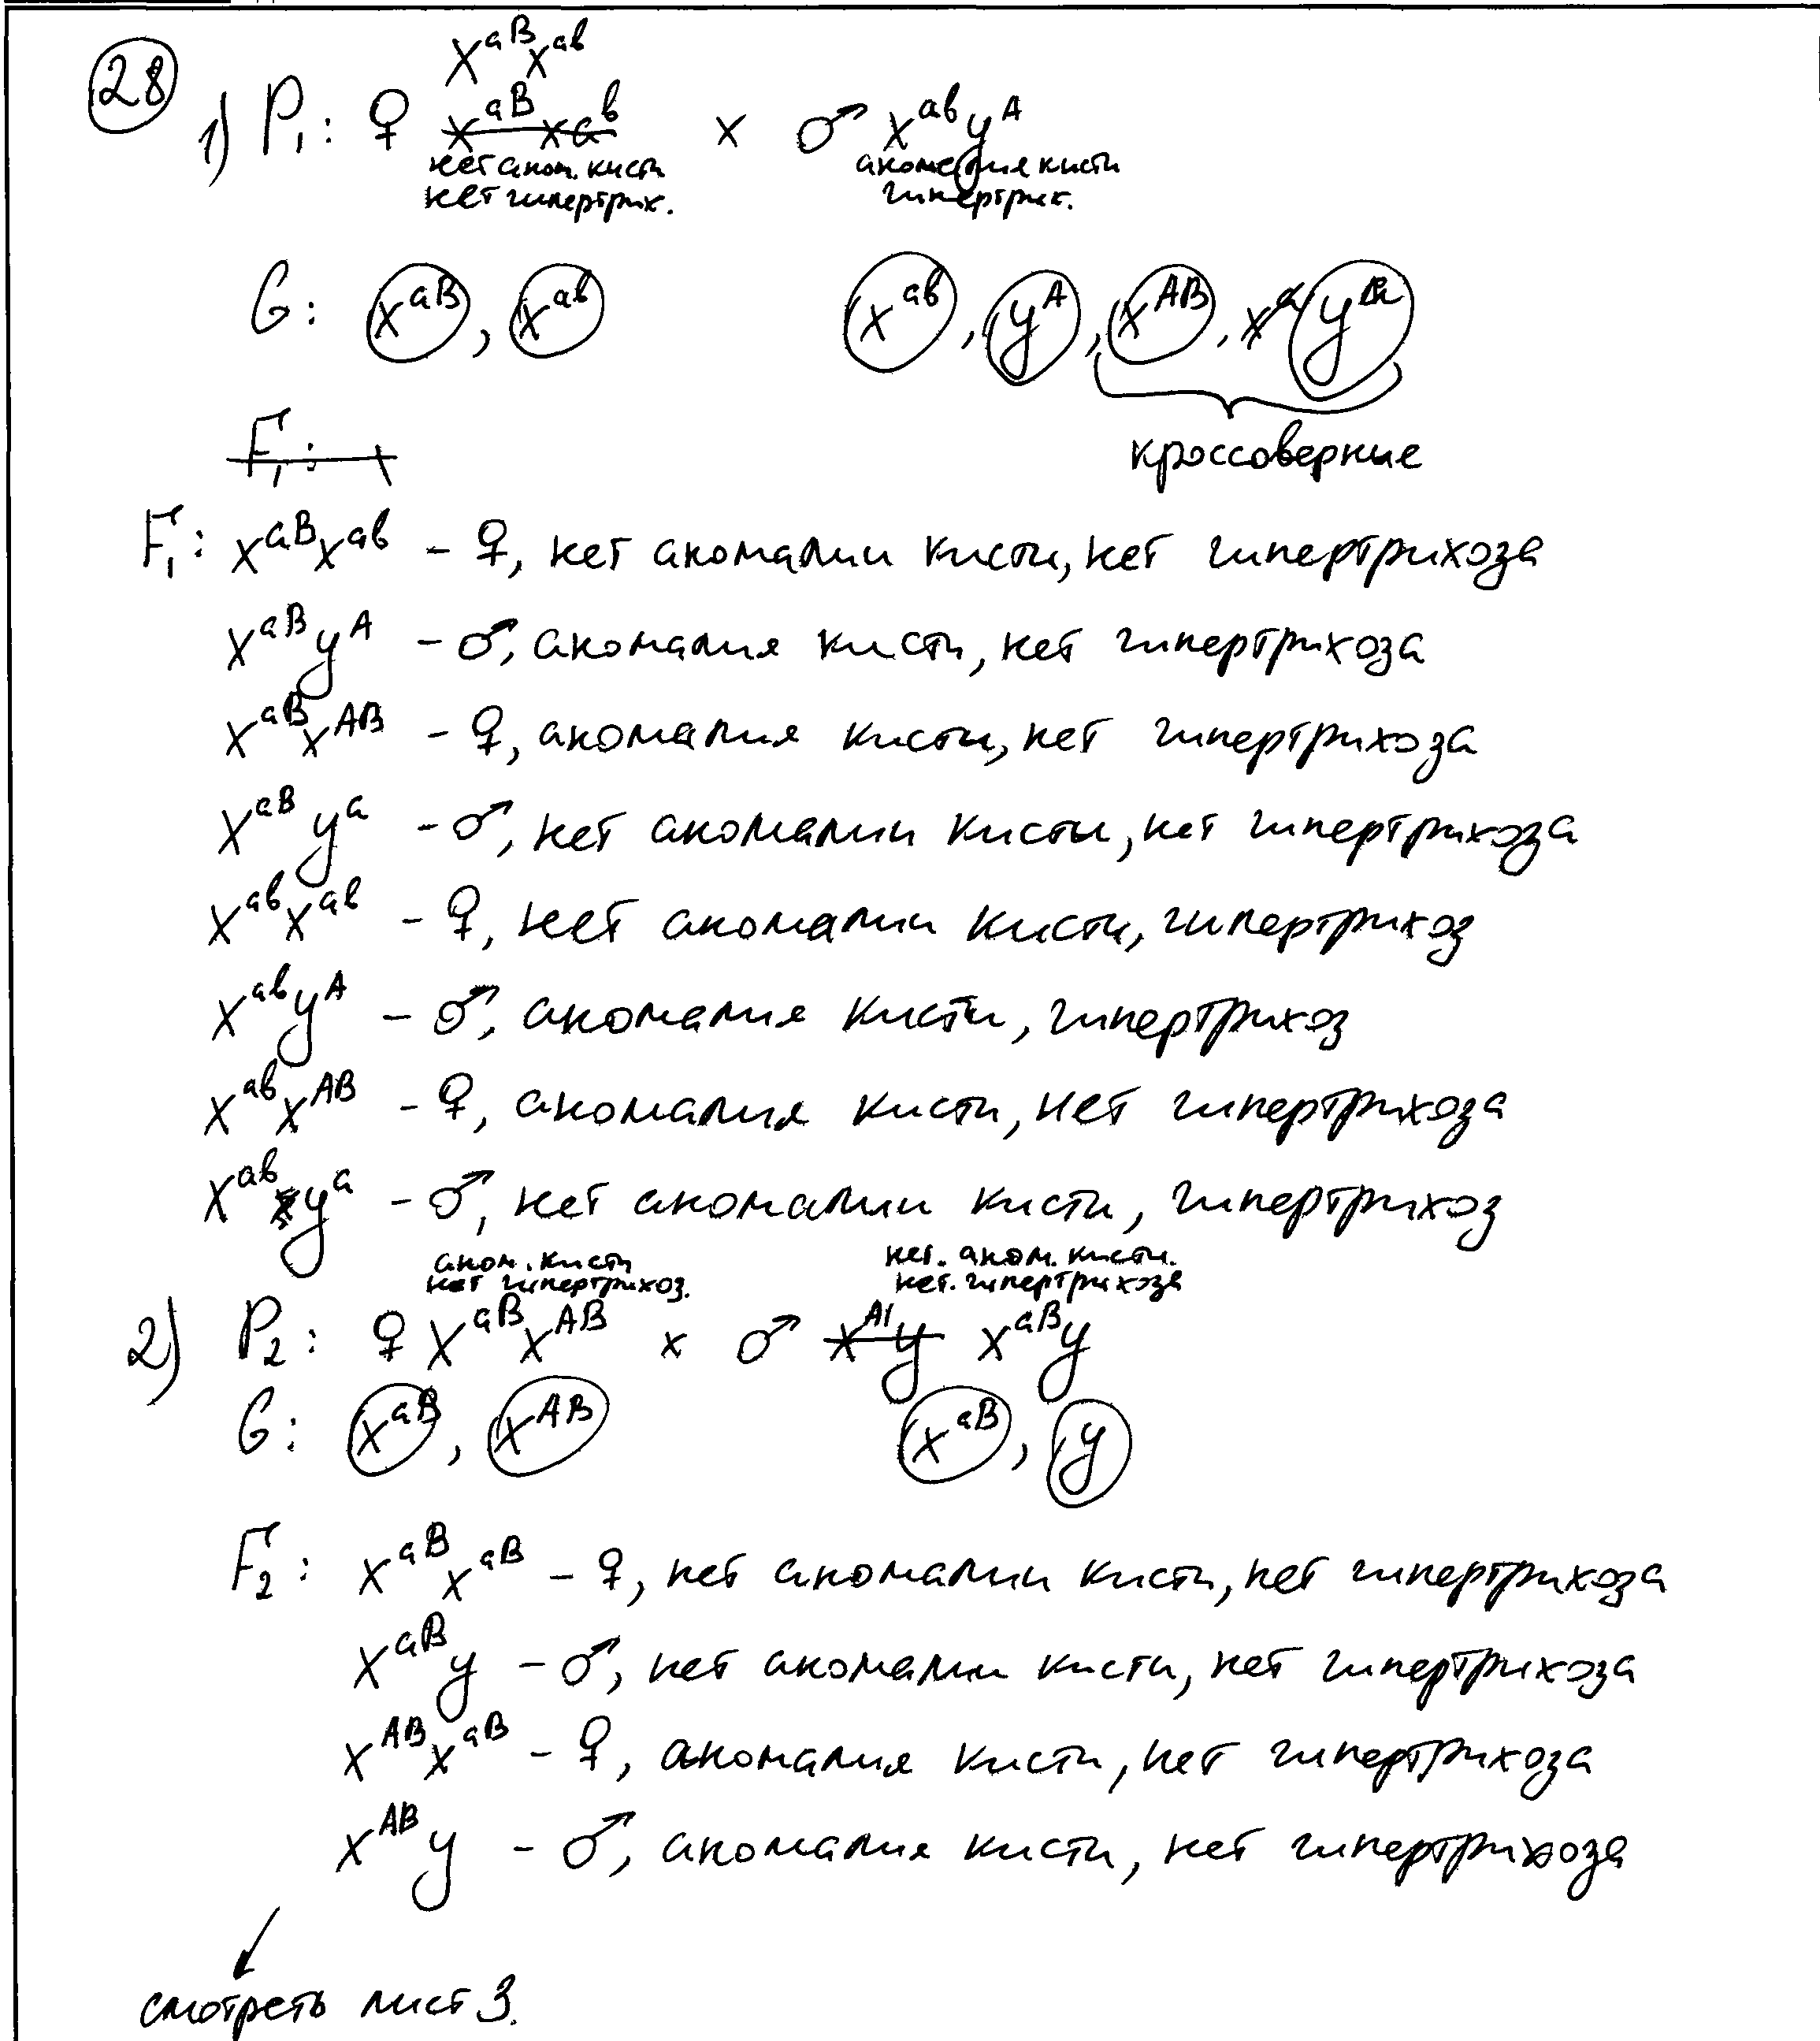 28
X^aB X^ab
1) P₁: ♀ x^aB x^ab × ♂ X^ab y^A
нет аном. кисти аномалия кисти
нет гипертрих. гипертрих.
G: X^aB, X^ab X^ab, y^A, X^AB, x^a y^a
кроссоверные
F₁:
F₁: X^aB X^ab - ♀, нет аномалии кисти, нет гипертрихоза
X^aB y^A - ♂, аномалия кисти, нет гипертрихоза
X^aB X^AB - ♀, аномалия кисти, нет гипертрихоза
X^aB y^a - ♂, нет аномалии кисти, нет гипертрихоза
X^ab X^ab - ♀, нет аномалии кисти, гипертрихоз
X^ab y^A - ♂, аномалия кисти, гипертрихоз
X^ab X^AB - ♀, аномалия кисти, нет гипертрихоза
X^ab y^a - ♂, нет аномалии кисти, гипертрихоз
аном. кисти нет. аном. кисти.
нет гипертрихоз. нет. гипертрихоза
2) P₂: ♀ X^aB X^AB × ♂ X^A y X^aB y
G: X^aB, X^AB X^aB, y
F₂: X^aB X^aB - ♀, нет аномалии кисти, нет гипертрихоза
X^aB y - ♂, нет аномалии кисти, нет гипертрихоза
X^AB X^aB - ♀, аномалия кисти, нет гипертрихоза
X^AB y - ♂, аномалия кисти, нет гипертрихоза
смотреть лист 3.